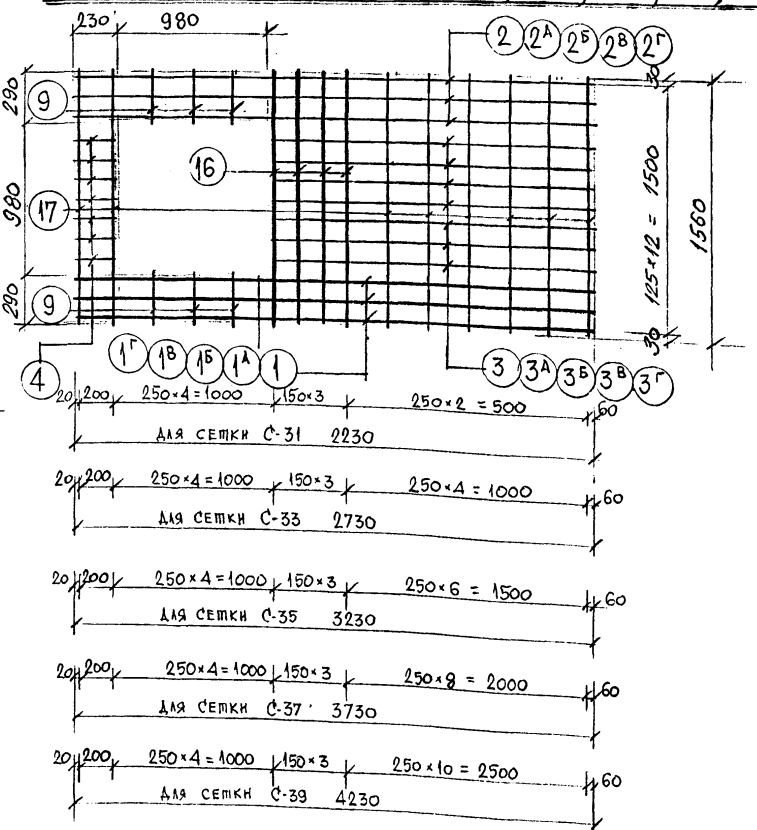 230 980
2 2А 2Б 2В 2Г
290 980 290
9
16
17
9
4
30
125×12 = 1500
30
1560
1Г 1В 1Б 1А 1
3 3А 3Б 3В 3Г
20 200 250×4=1000 150×3 250×2 = 500 60
ДЛЯ СЕТКИ С-31 2230
20 200 250×4=1000 150×3 250×4= 1000 60
ДЛЯ СЕТКИ С-33 2730
20 200 250×4=1000 150×3 250×6 = 1500 60
ДЛЯ СЕТКИ С-35 3230
20 200 250×4=1000 150×3 250×8 = 2000 60
ДЛЯ СЕТКИ С-37 3730
20 200 250×4=1000 150×3 250×10 = 2500 60
ДЛЯ СЕТКИ С-39 4230